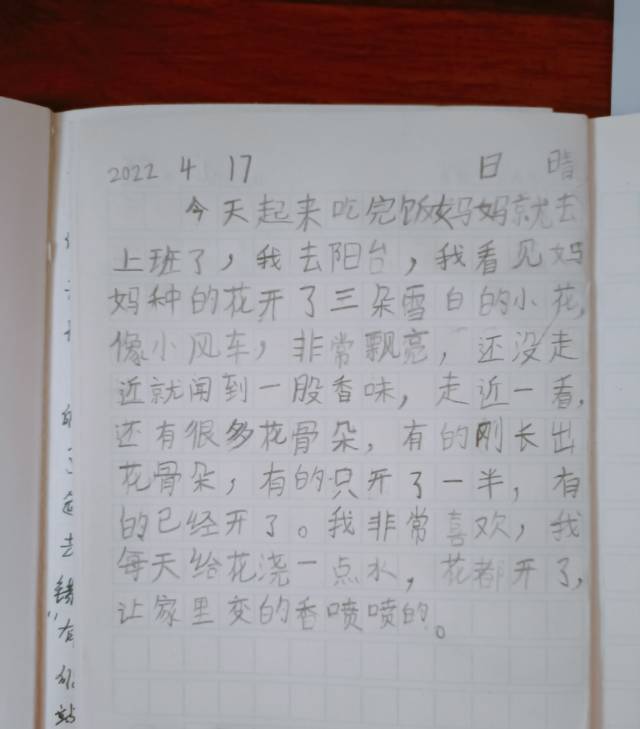 2022 4 17 日 晴
今天起来吃完饭妈妈就去
上班了，我去阳台，我看见妈
妈种的花开了三朵雪白的小花，
像小风车，非常飘亮，还没走
近就闻到一股香味，走近一看，
还有很多花骨朵，有的刚长出
花骨朵，有的只开了一半，有
的已经开了。我非常喜欢，我
每天给花浇一点水，花都开了，
让家里变的香喷喷的。
去
错
站